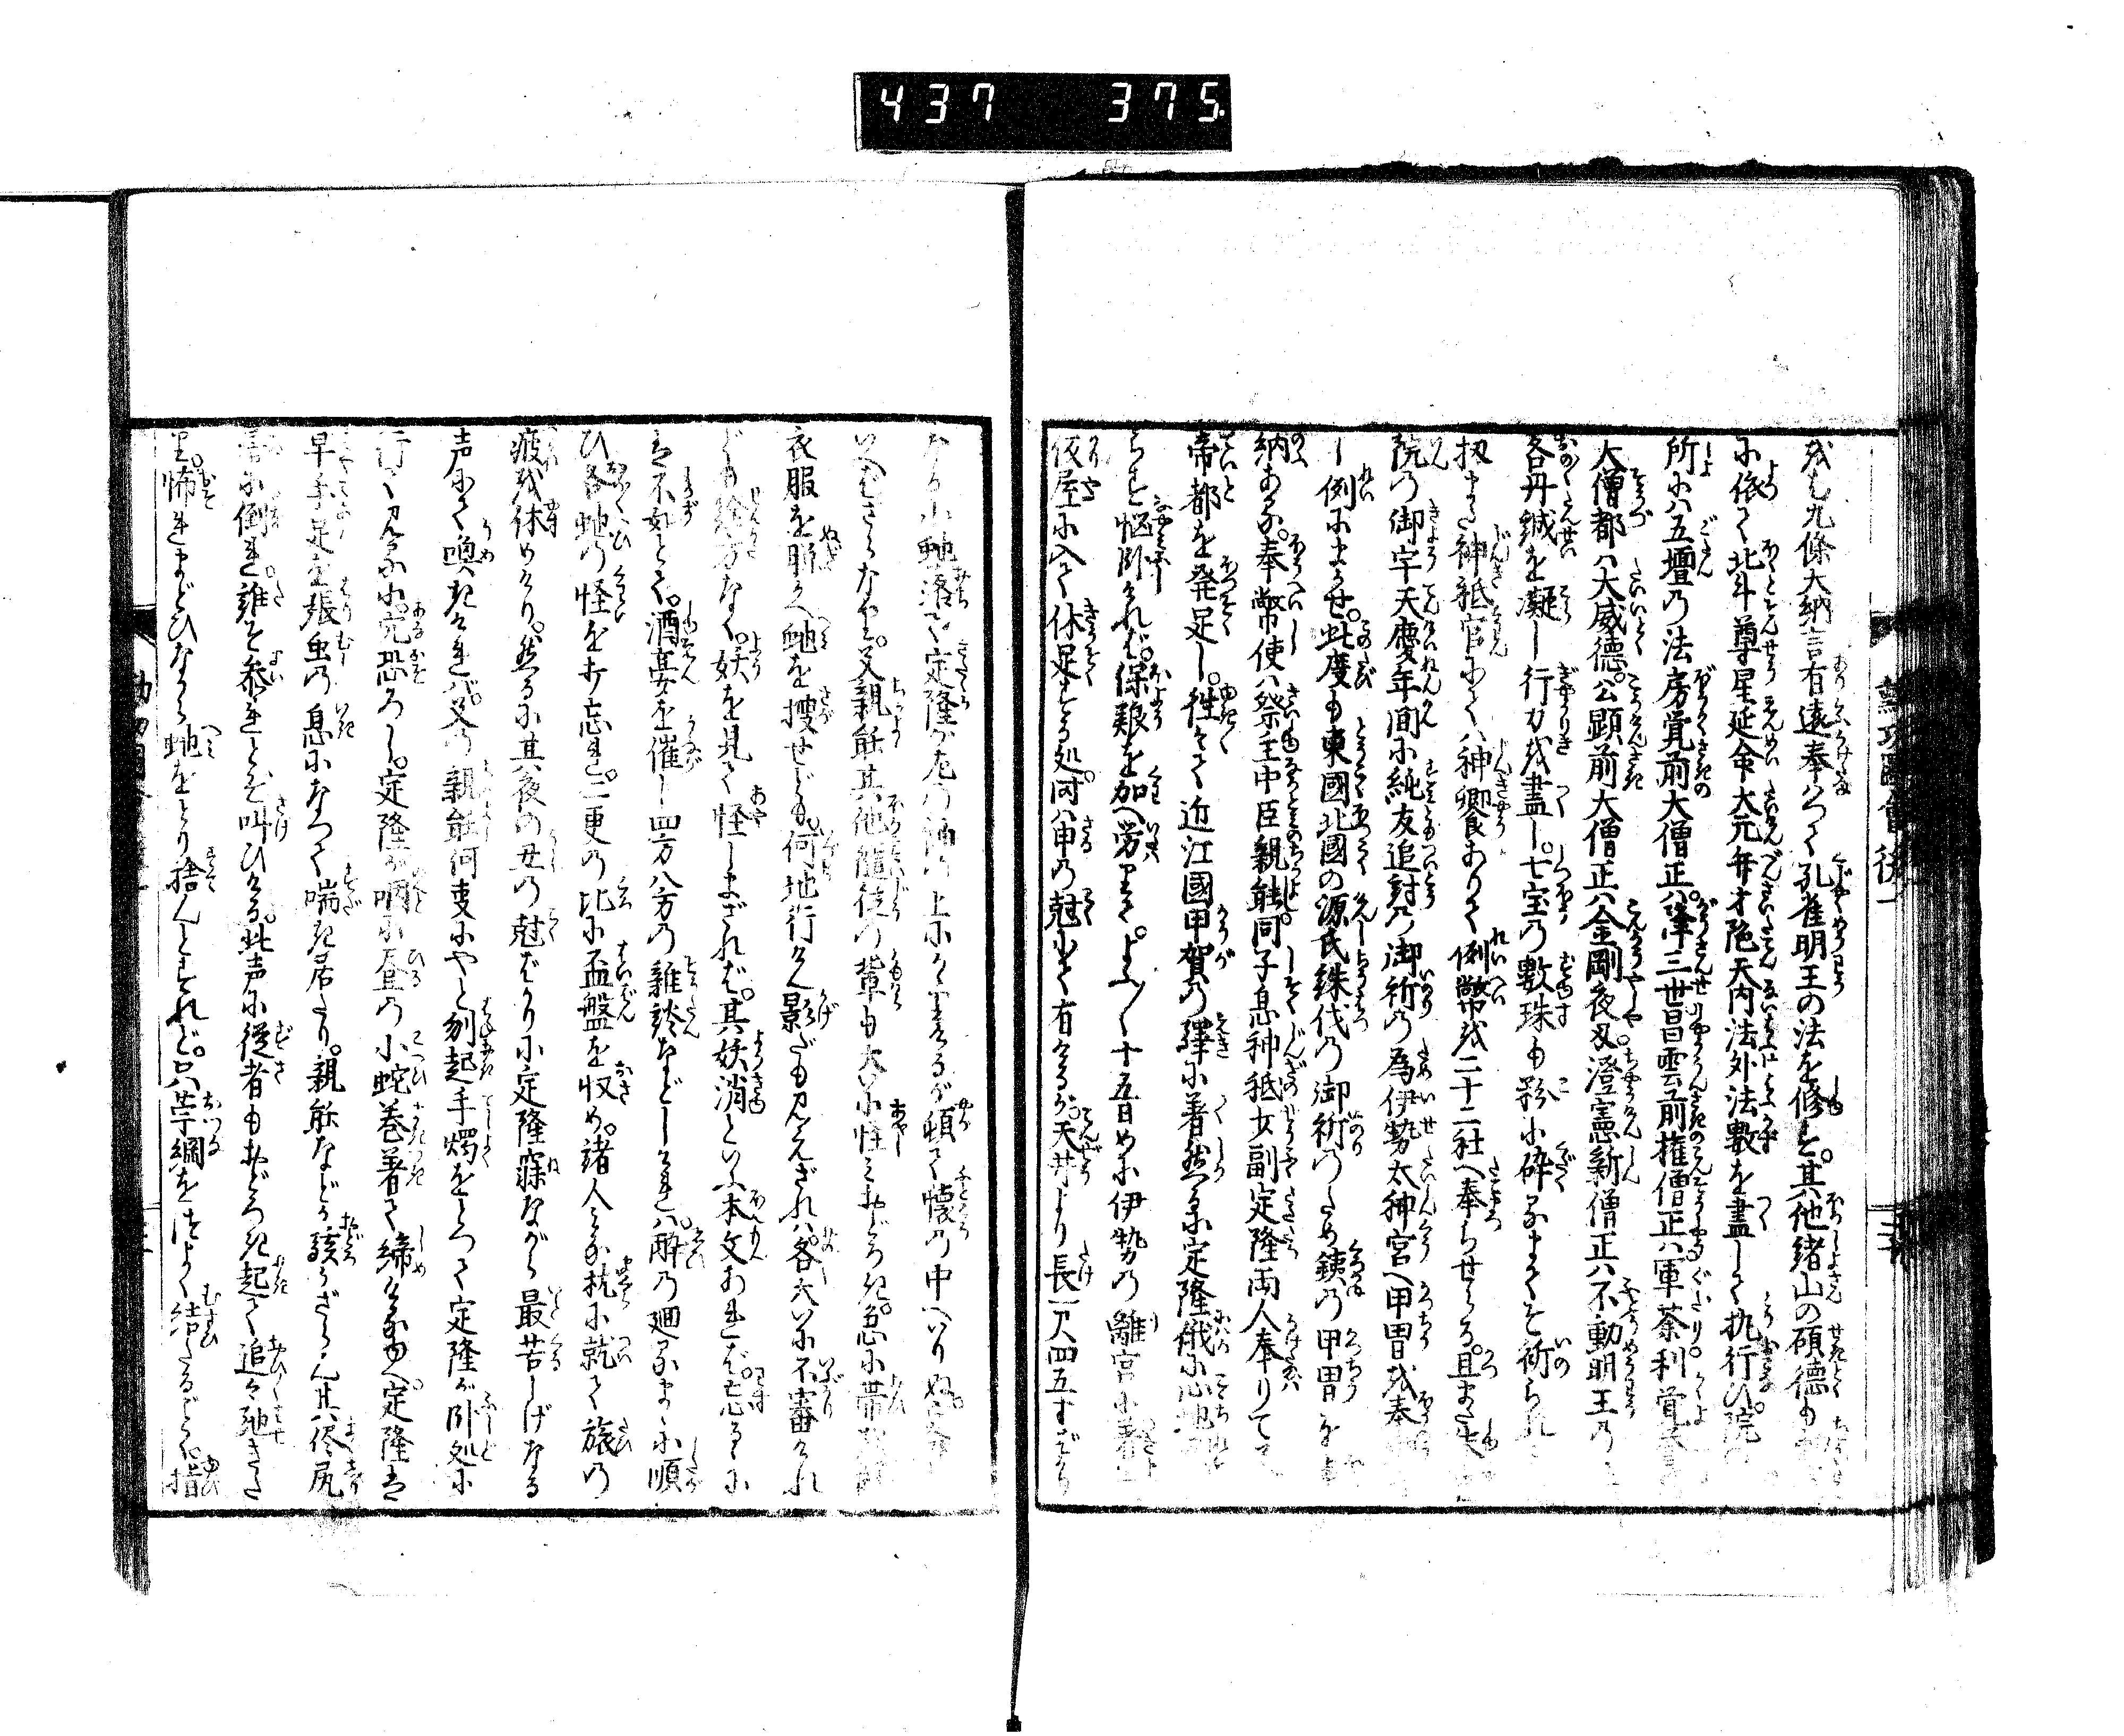 437 375.
或も九條大納言有遠奉りて孔雀明王の法を修す。其他諸山の碩徳も
に依て北斗尊星延命大元弁才陀天内法外法數を盡して執行ひ。院の
所にハ五壇の法房覚前大僧正ハ降三世昌雲前権僧正ハ軍荼利覚
大僧都ハ大威徳。公顕前大僧正ハ金剛夜叉澄憲新僧正ハ不動明王の
各丹誠を凝し行力を盡し。七宝の數珠も粉に砕るまでぞ祈られ
扨また神祇官にてハ神饗ありて例幣を二十二社へ奉らせらる。且また
院の御宇天慶年間に純友追討の御祈の為伊勢太神宮へ甲冑を奉
し例にまかせ。此度も東國北國の源氏誅伐の御祈のため鉄の甲冑を
納ある。奉幣使ハ祭主中臣親能同子息神祇少副定隆両人奉りて
帝都を発足し。往々て近江國甲賀の驛に着然るに定隆俄に心地
らず悩卧けれバ。保養を加へ労りて。よふ〳〵十五日めに伊勢の離宮に着
仮屋に入て休足する処。同ハ申の尅にて有けるが。天井より長一尺四五寸ばかり
なる小虵落て定隆が左の袖の上に
いへばさらなり。父親能其他随従の輩も大に怪みおどろき。急に帯
衣服を脱かへ虵を捜せども。何地行けん影だも見えざれハ。各大いに不審けれ
ども詮方なく。妖を見て怪しまざれバ。其妖消といふ本文あれバ。忘るゝに
は不如とて。酒宴を催し四方八方の雑談などしけれハ。酔の廻るまゝに順
ひ各虵の怪を打忘れ。二更の比に盃盤を収め。諸人みな枕に就て旅の
疲を休めけり。然るに其夜の丑の尅ばかりに定隆寐ながら最苦しげなる
声にて喚きけれバ。父の親能何事にやと刎起手燭をとつて定隆が卧処に
行て見るに。穴恐ろし。定隆が咽に昼の小蛇巻着て締けるゆへ。定隆は
早手足を張虫の息になつて喘ぎ居たり。親能などか驚かざらん其儘尻
居に倒れ。誰ぞ参れとぞ叫びける。此声に従者もおどろき起て追々馳きた
り。怖れまどひながら虵をとり捨んとすれど。只苧綱をつよく結たるごとく。指